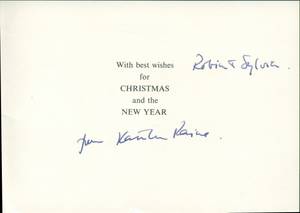 With best wishes
for
CHRISTMAS
and the
NEW YEAR
Robin & Sylvia.
from Kathleen Raine.